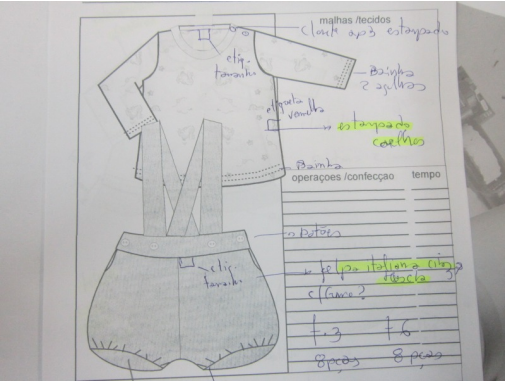 malhas /tecidos
estampado
etiq.
tamanho
Bainha
2 agulhas
etiqueta
vermelha
estampado
coelhos
Bainha
operaçoes /confecçao tempo
botões
etiq.
tamanho
felpa italiana
mescla
t.3 t.6
8 pças 8 pças